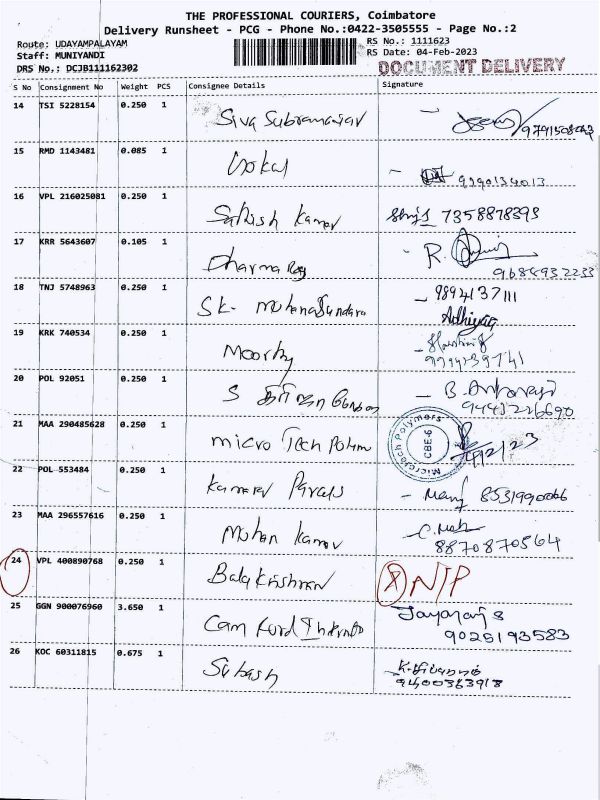 THE PROFESSIONAL COURIERS, Coimbatore
Delivery Runsheet - PCG - Phone No.:0422-3505555 - Page No.:2
Route: UDAYAMPALAYAM
Staff: MUNIYANDI
DRS No.: DCJB111162302
RS No.: 1111623
RS Date: 04-Feb-2023
DOCUMENT DELIVERY
S No Consignment No Weight PCS Consignee Details Signature
14 TSI 5228154 0.250 1 Siva Subramaniam
15 RMD 1143481 0.085 1 Gokul
16 VPL 216025081 0.250 1 Sathish Kumar 7358878393
17 KRR 5643607 0.105 1 Dharma Raj R. 9688932233
18 TNJ 5748963 0.250 1 SK- Mohanasundara 9894137111
19 KRK 740534 0.250 1 Moorthy
20 POL 92051 0.250 1 S
21 MAA 290485628 0.250 1 micro Tech Polym
MicroTech Polymers
CBE-6
22 POL 553484 0.250 1 8531990066
23 MAA 296557616 0.250 1 Mohan Kumar
8870870564
24 VPL 400890768 0.250 1 Balakrishnan NTP
25 GGN 900076960 3.650 1 Cam Ford Jayaraj S
9025193583
26 KOC 60311815 0.675 1 Subash
9400363913